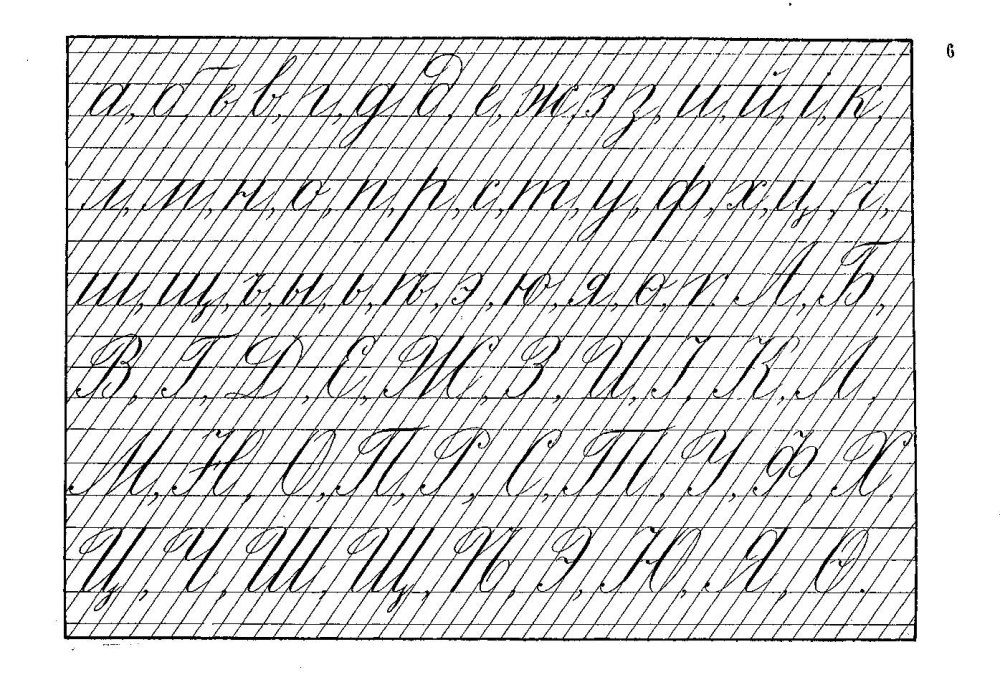 6
а, б б в, г, д д, е, ж, з з, и, й, і, к,
л, м, н, о, п, р, с, т, у, ф, х, ц, ч,
ш, щ, ъ, ы, ь, ѣ, э, ю, я, ѳ, ѵ. А, Б,
В, Г, Д, Е, Ж, З, И, І, К, Л,
М, Н, О, П, Р, С, Т, У, Ф, Х,
Ц, Ч, Ш, Щ, Ѣ, Э, Ю, Я, Ѳ.